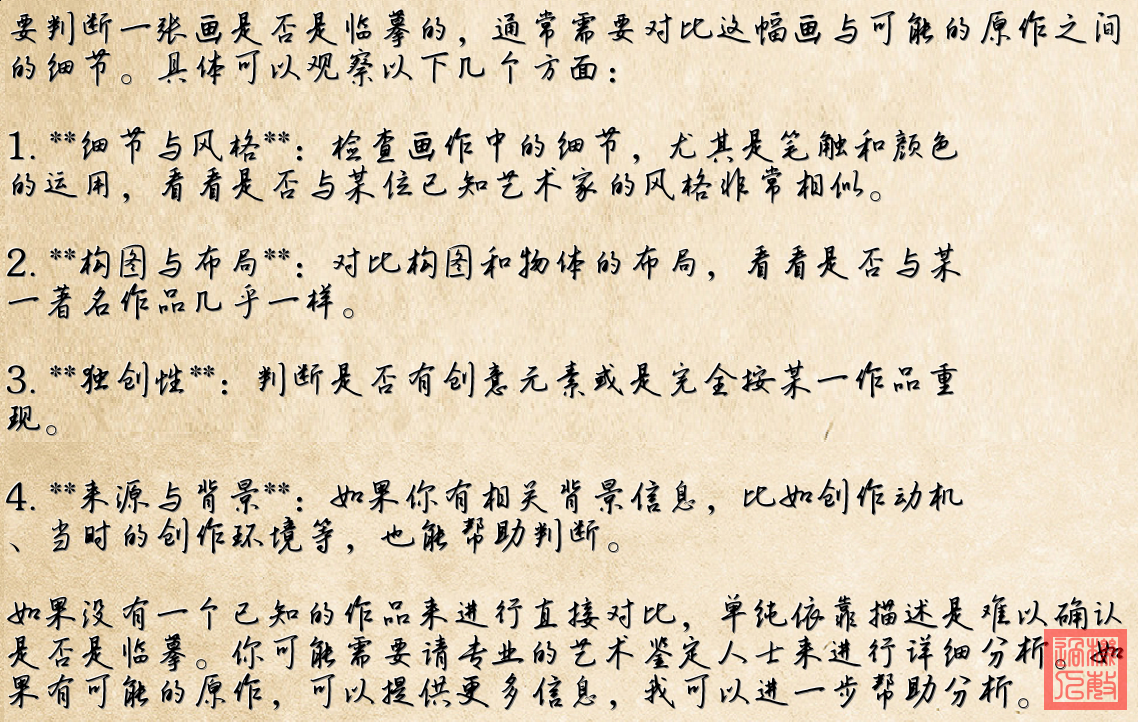 要判断一张画是否是临摹的，通常需要对比这幅画与可能的原作之间
的细节。具体可以观察以下几个方面：
1. **细节与风格**：检查画作中的细节，尤其是笔触和颜色
的运用，看看是否与某位已知艺术家的风格非常相似。
2. **构图与布局**：对比构图和物体的布局，看看是否与某
一著名作品几乎一样。
3. **独创性**：判断是否有创意元素或是完全按某一作品重
现。
4. **来源与背景**：如果你有相关背景信息，比如创作动机
、当时的创作环境等，也能帮助判断。
如果没有一个已知的作品来进行直接对比，单纯依靠描述是难以确认
是否是临摹。你可能需要请专业的艺术鉴定人士来进行详细分析。如
果有可能的原作，可以提供更多信息，我可以进一步帮助分析。